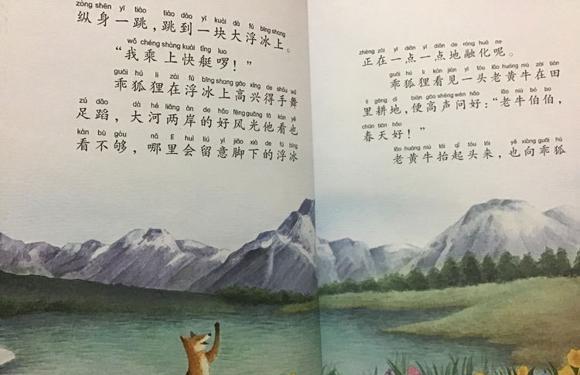 zòng shēn yí tiào tiào dào yí kuài dà fú bīng shang
纵身一跳，跳到一块大浮冰上。
wǒ chéng shàng kuài tǐng luo
“我乘上快艇啰！”
guāi hú li zài fú bīng shang gāo xìng de shǒu wǔ
乖狐狸在浮冰上高兴得手舞
zú dǎo dà hé liǎng àn de hǎo fēng guāng tā kàn yě
足蹈，大河两岸的好风光他看也
kàn bú gòu nǎ lǐ huì liú yì jiǎo xià de fú bīng
看不够，哪里会留意脚下的浮冰
zhèng zài yì diǎn yì diǎn de róng huà ne
正在一点一点地融化呢。
guāi hú li kàn jiàn yì tóu lǎo huáng niú zài tián
乖狐狸看见一头老黄牛在田
li gēng dì biàn gāo shēng wèn hǎo lǎo niú bó bo
里耕地，便高声问好：“老牛伯伯，
chūn tiān hǎo
春天好！”
lǎo huáng niú tái qǐ tóu lái yě xiàng guāi hú
老黄牛抬起头来，也向乖狐